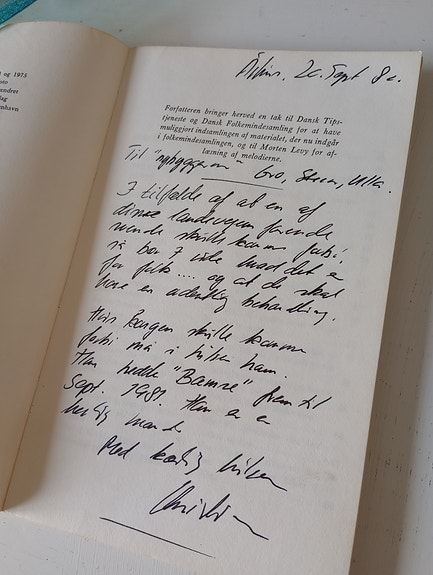 g 1973
oto
andret
lag
enhavn
Århus. 20. Sept 82.
Forfatteren bringer herved en tak til Dansk Tips-
tjeneste og Dansk Folkemindesamling for at have
muliggjort indsamlingen af materialet, der nu indgår
i folkemindesamlingen, og til Morten Levy for af-
læsning af melodierne.
Til "nybyggerne" Gro, Steen, Ulla.
I tilfælde af at en af
disse landevejen farende
svende skulle komme forbi,
så bør I vide hvad det er
for folk .... og at de skal
have en ordentlig behandling.
Hvis kongen skulle komme
forbi må i hilse ham.
Han hedder "Bamse" frem til
Sept. 1981. Han er en
herlig mand
Med kærlig hilsen